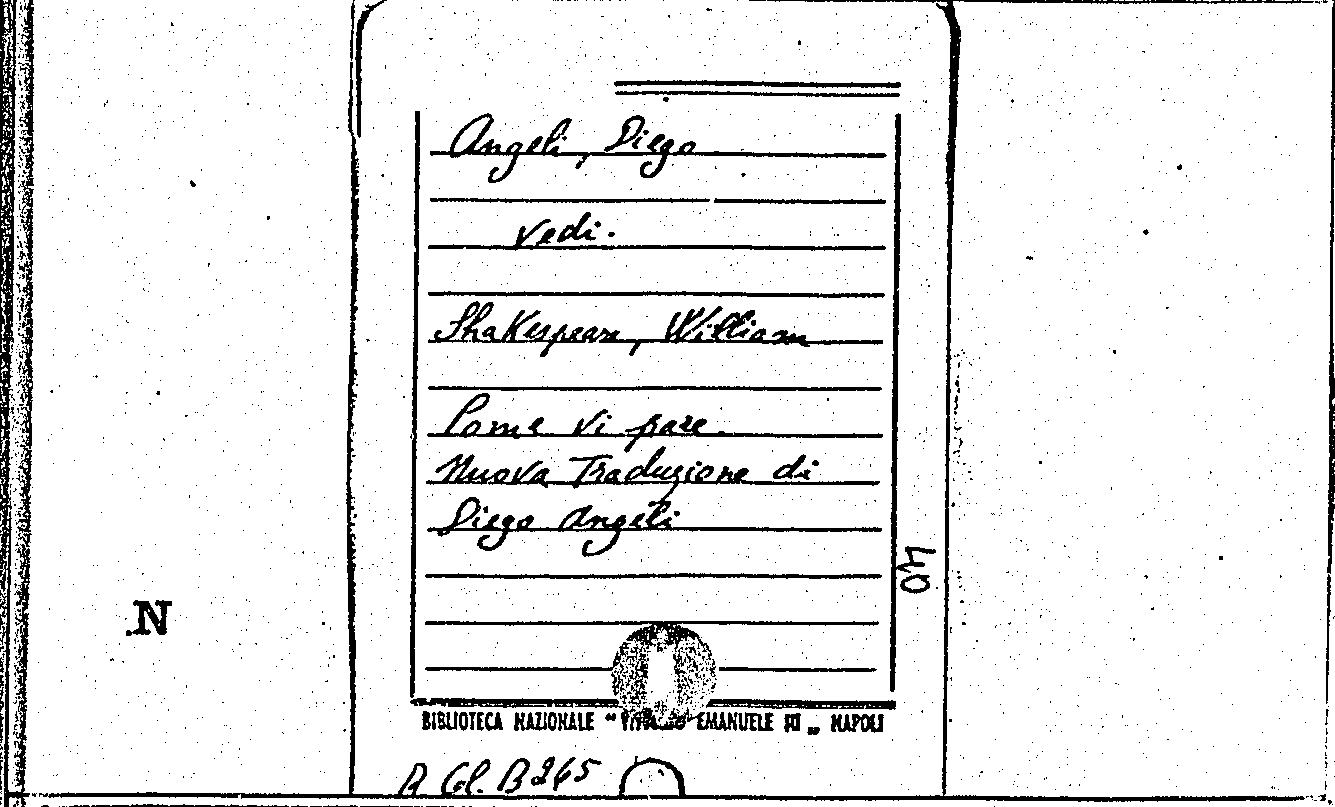 Angeli, Diego
vedi.
Shakespeare, William
Come vi pare.
Nuova Traduzione di
Diego Angeli
40
.N
BIBLIOTECA NAZIONALE " EMANUELE III „ NAPOLI
B 265